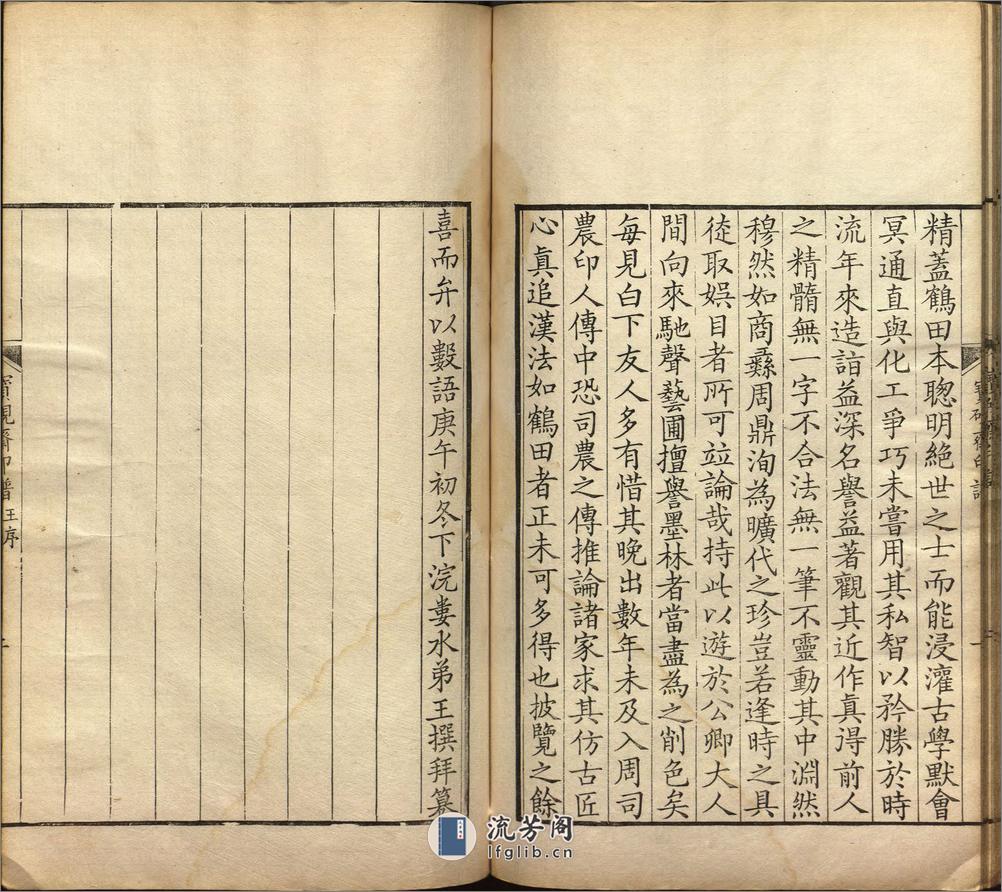 精蓋鶴田本聰明絕世之士而能浸灌古學默會
冥通直與化工爭巧未嘗用其私智以矜勝於時
流年來造詣益深名譽益著觀其近作真得前人
之精髓無一字不合法無一筆不靈動其中淵然
穆然如商彝周鼎洵為曠代之珍豈若逢時之具
徒取娛目者所可竝論哉持此以遊於公卿大人
間向來馳聲藝圃擅譽墨林者當盡為之削色矣
每見白下友人多有惜其晚出數年未及入周司
農印人傳中恐司農之傳推論諸家求其仿古匠
心真追漢法如鶴田者正未可多得也披覽之餘
喜而弁以數語庚午初冬下浣婁水弟王撰拜纂
寶硯齋印譜 王序
二
流芳阁
lfglib.cn